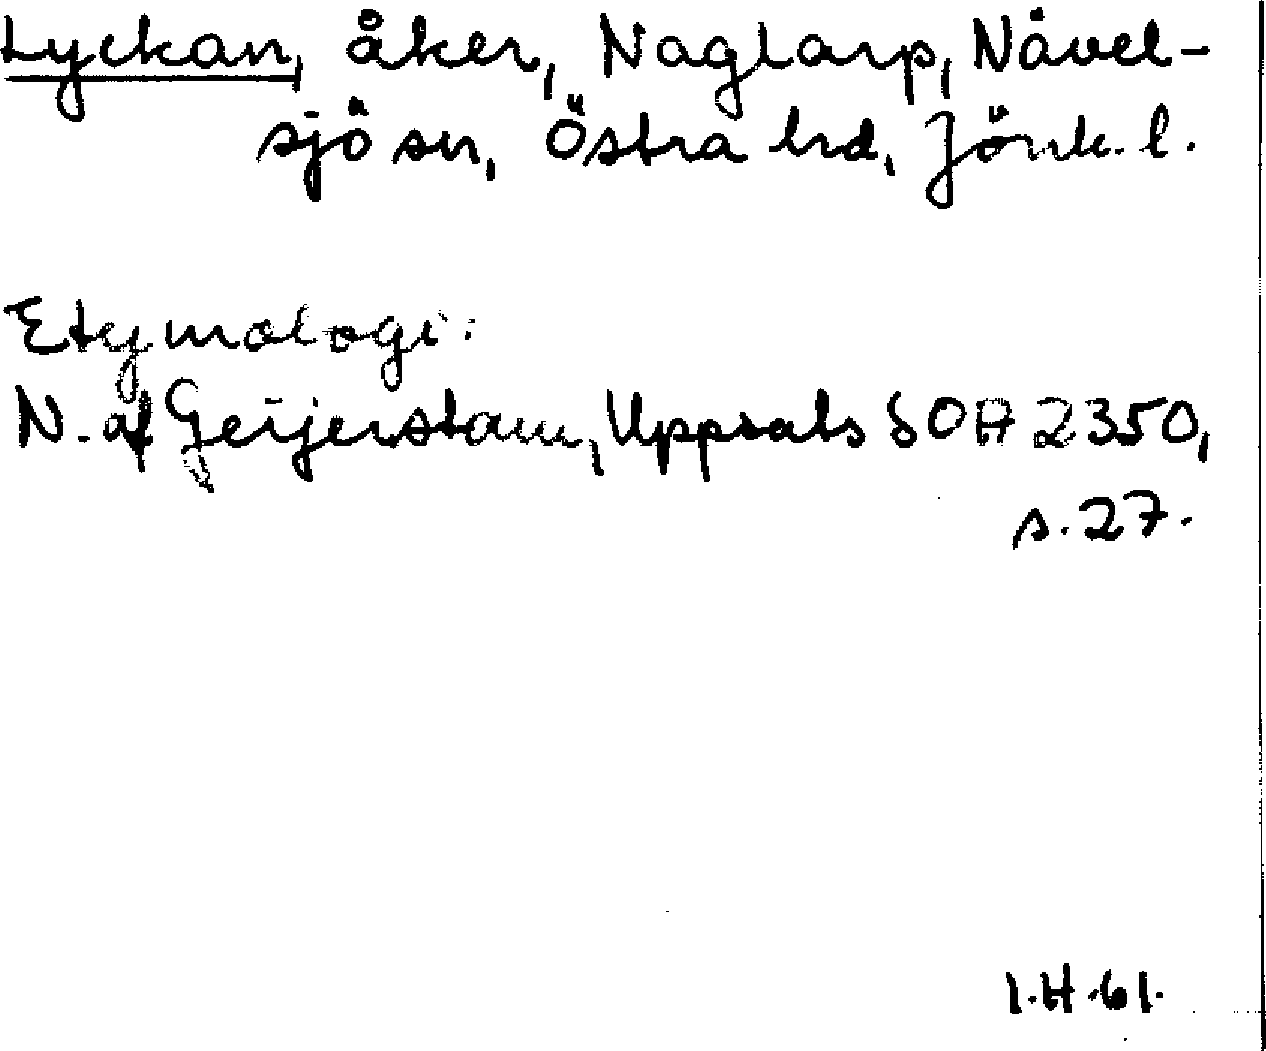 Lyckan, åker, Naglarp, Nävel-
sjö sn, Östra hd, Jönk. l.
Etymologi:
N. af Geijerstam, Uppsats SOA 2350,
s. 27.
I.H.61.